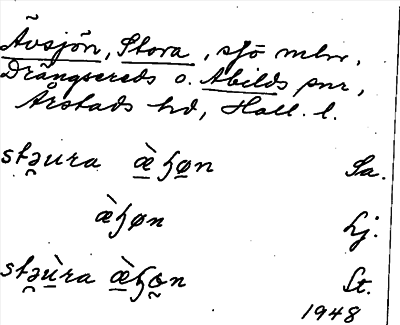 Åvsjön, Stora, sjö mln.
Drängsereds o. Abilds snr,
Årstads hd, Hall. l.
stəura æ̀ɧøn Sa.
æ̀ɧøn Lj.
stəùra æ̀ɧøn St.
1948